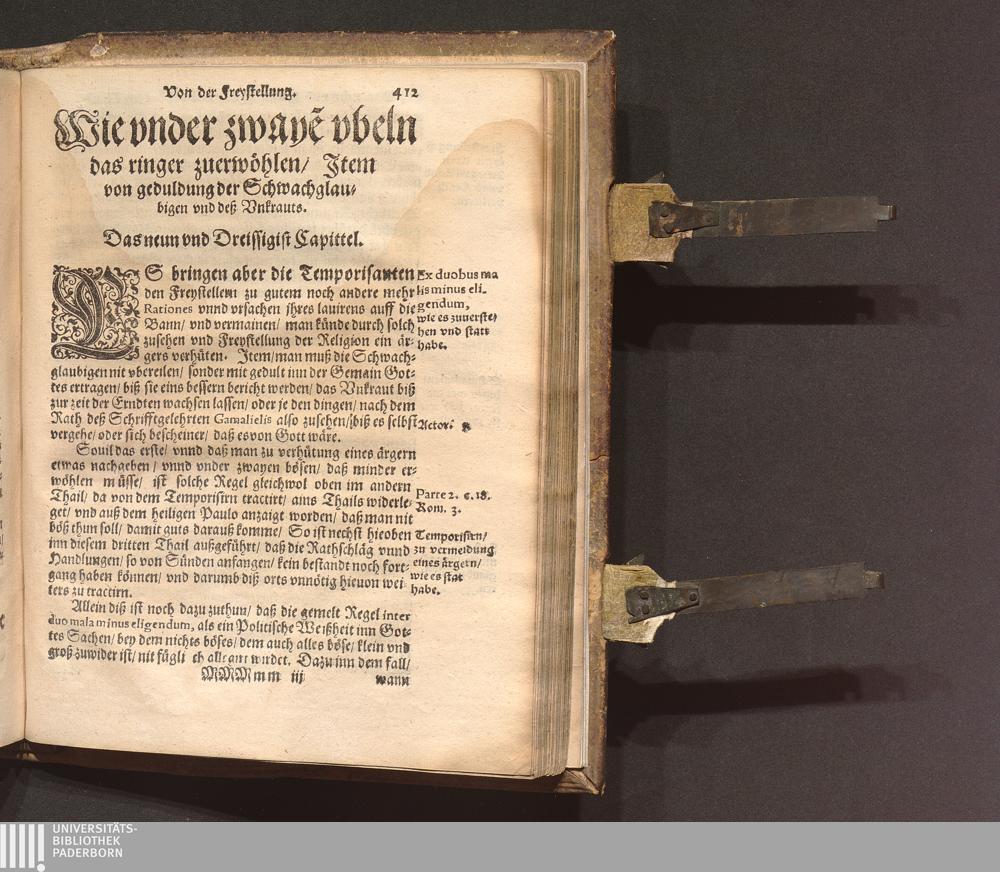 Von der Freystellung. 412
Wie vnder zwayē vbeln
das ringer zuerwöhlen/ Item
von geduldung der Schwachglau-
bigen vnd deß Vnkrauts.
Das neun vnd Dreissigist Capittel.
ES bringen aber die Temporisanten
den Freystellern zu gutem noch andere mehr
Rationes vnnd vrsachen ihres lauirens auff die
Bann/ vnd vermainen/ man künde durch solch
zusehen vnd Freystellung der Religion ein är-
gers verhüten. Item/ man muß die Schwach-
glaubigen nit vbereilen/ sonder mit gedult inn der Gemain Got-
tes ertragen/ biß sie eins bessern bericht werden/ das Vnkraut biß
zur zeit der Erndten wachsen lassen/ oder je den dingen/ nach dem
Rath deß Schrifftgelehrten Gamalielis also zusehen/ biß es selbst
vergehe/ oder sich bescheine/ daß es von Gott wäre.
Souil das erste/ vnnd daß man zu verhütung eines ärgern
etwas nachgeben/ vnnd vnder zwayen bösen/ daß minder er-
wöhlen müsse/ ist solche Regel gleichwol oben im andern
Thail/ da von dem Temporisirn tractirt/ ains Thails widerle-
get/ vnd auß dem heiligen Paulo anzaigt worden/ daß man nit
böß thun soll/ damit guts darauß komme/ So ist nechst hieoben
inn diesem dritten Thail außgeführt/ daß die Rathschläg vnnd
Handlungen/ so von Sünden anfangen/ kein bestandt noch fort-
gang haben können/ vnd darumb diß orts vnnötig hieuon wei-
ters zu tractirn.
Allein diß ist noch dazu zuthun/ daß die gemelt Regel inter
duo mala minus eligendum, als ein Politische Weißheit inn Got-
tes Sachen/ bey dem nichts böses/ dem auch alles böse/ klein vnd
groß zuwider ist/ nit fügli ch wirdet. Dazu inn dem fall/
MMMmm iij wann
Ex duobus ma
lis minus eli-
gendum,
wie es zuuerste/
hen vnd statt
habe.
Actor.
Parte 2. c. 18.
Rom. 3.
Temporisirn/
zu vermeidung
eines ärgern/
wie es stat
habe.
UNIVERSITÄTS-
BIBLIOTHEK
PADERBORN